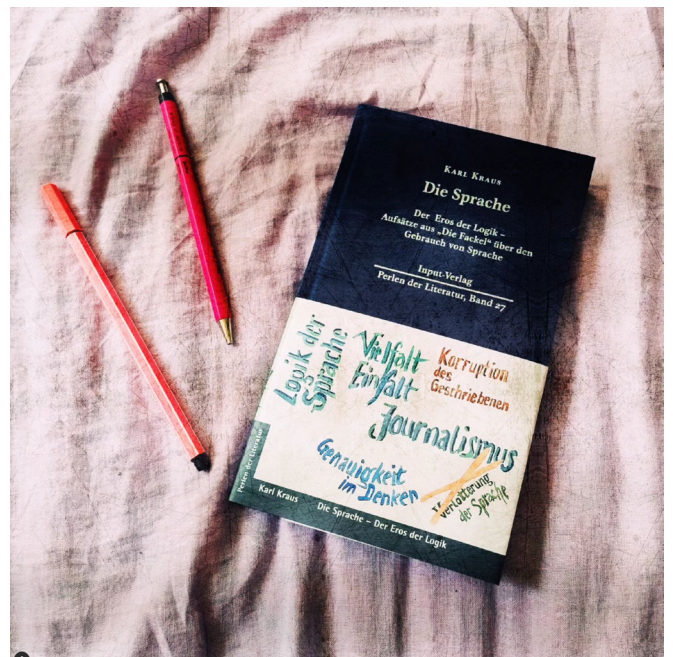 Karl Kraus
Die Sprache
Der Eros der Logik –
Aufsätze aus „Die Fackel“ über den
Gebrauch von Sprache
Input-Verlag
Perlen der Literatur, Band 27
Logik der
Sprache
Vielfalt
Einfalt
Korruption
des
Geschriebenen
Journalismus
Genauigkeit
im Denken
Verlotterung
der Sprache
Perlen der Literatur
Karl Kraus
Die Sprache – Der Eros der Logik